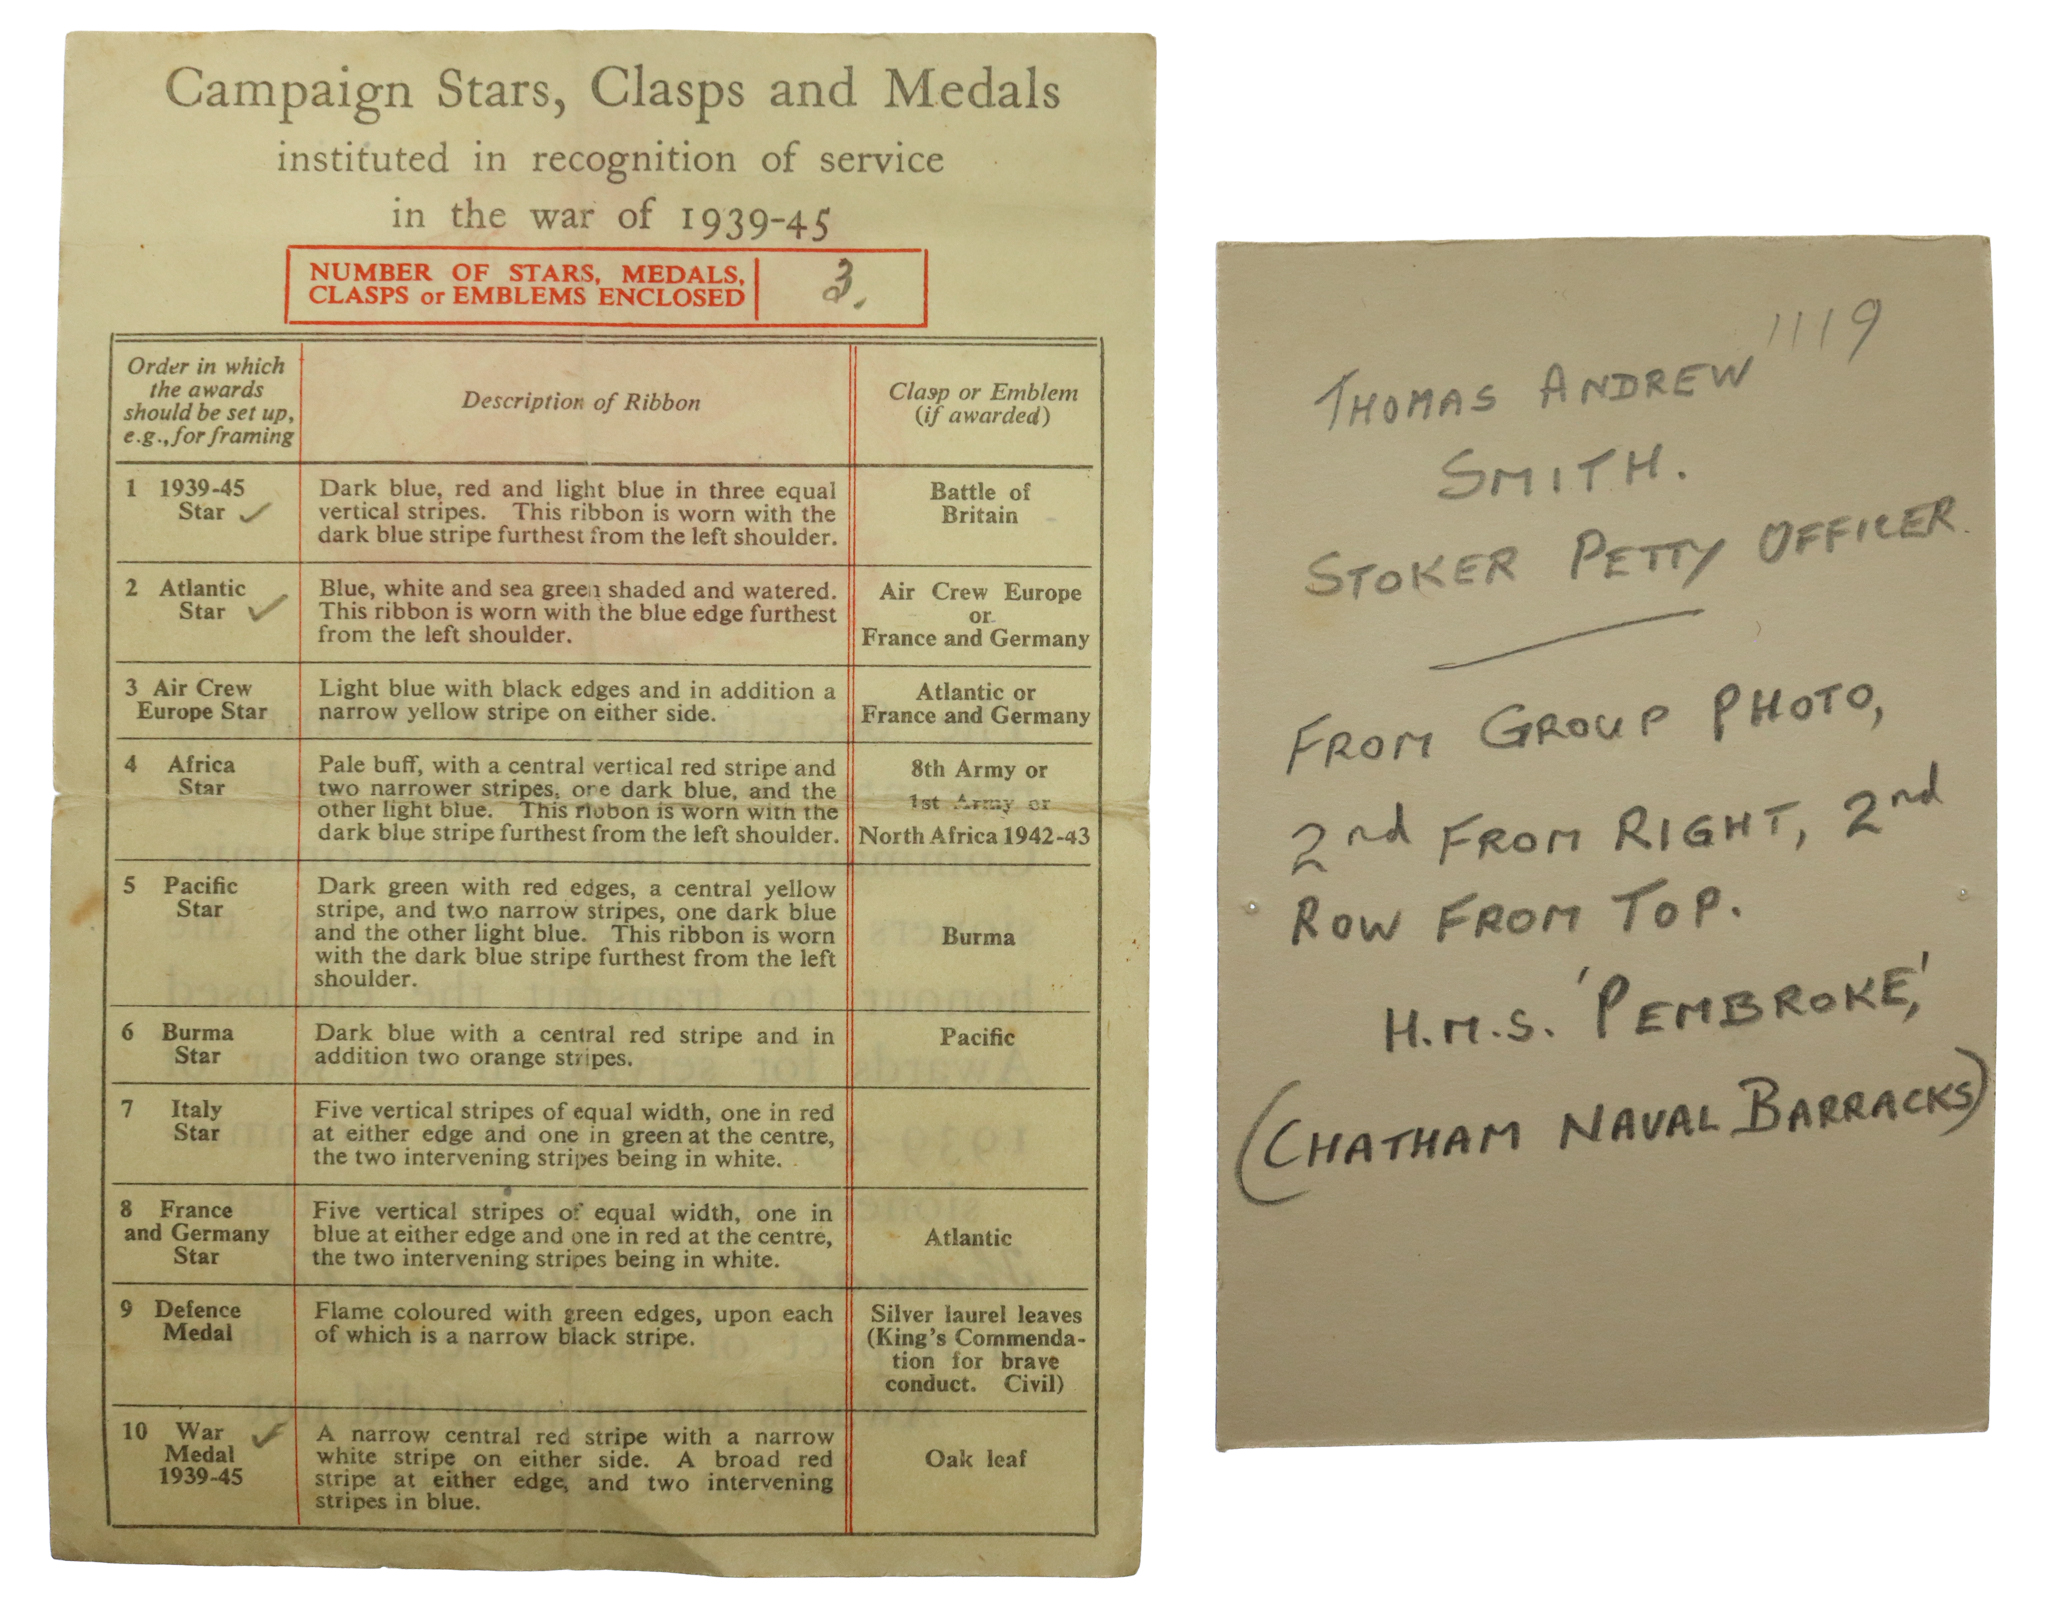 Campaign Stars, Clasps and Medals
instituted in recognition of service
in the war of 1939-45
NUMBER OF STARS, MEDALS,
CLASPS or EMBLEMS ENCLOSED
3.
Order in which
the awards
should be set up,
e.g., for framing
Description of Ribbon
Clasp or Emblem
(if awarded)
1 1939-45
Star ✓
Dark blue, red and light blue in three equal
vertical stripes. This ribbon is worn with the
dark blue stripe furthest from the left shoulder.
Battle of
Britain
2 Atlantic
Star ✓
Blue, white and sea green shaded and watered.
This ribbon is worn with the blue edge furthest
from the left shoulder.
Air Crew Europe
or
France and Germany
3 Air Crew
Europe Star
Light blue with black edges and in addition a
narrow yellow stripe on either side.
Atlantic or
France and Germany
4 Africa
Star
Pale buff, with a central vertical red stripe and
two narrower stripes, one dark blue, and the
other light blue. This ribbon is worn with the
dark blue stripe furthest from the left shoulder.
8th Army or
1st Army or
North Africa 1942-43
5 Pacific
Star
Dark green with red edges, a central yellow
stripe, and two narrow stripes, one dark blue
and the other light blue. This ribbon is worn
with the dark blue stripe furthest from the left
shoulder.
Burma
6 Burma
Star
Dark blue with a central red stripe and in
addition two orange stripes.
Pacific
7 Italy
Star
Five vertical stripes of equal width, one in red
at either edge and one in green at the centre,
the two intervening stripes being in white.
8 France
and Germany
Star
Five vertical stripes of equal width, one in
blue at either edge and one in red at the centre,
the two intervening stripes being in white.
Atlantic
9 Defence
Medal
Flame coloured with green edges, upon each
of which is a narrow black stripe.
Silver laurel leaves
(King's Commenda-
tion for brave
conduct. Civil)
10 War ✓
Medal
1939-45
A narrow central red stripe with a narrow
white stripe on either side. A broad red
stripe at either edge, and two intervening
stripes in blue.
Oak leaf
1119
THOMAS ANDREW
SMITH.
STOKER PETTY OFFICER.
FROM GROUP PHOTO,
2nd FROM RIGHT, 2nd
ROW FROM TOP.
H.M.S. 'PEMBROKE,'
(CHATHAM NAVAL BARRACKS)